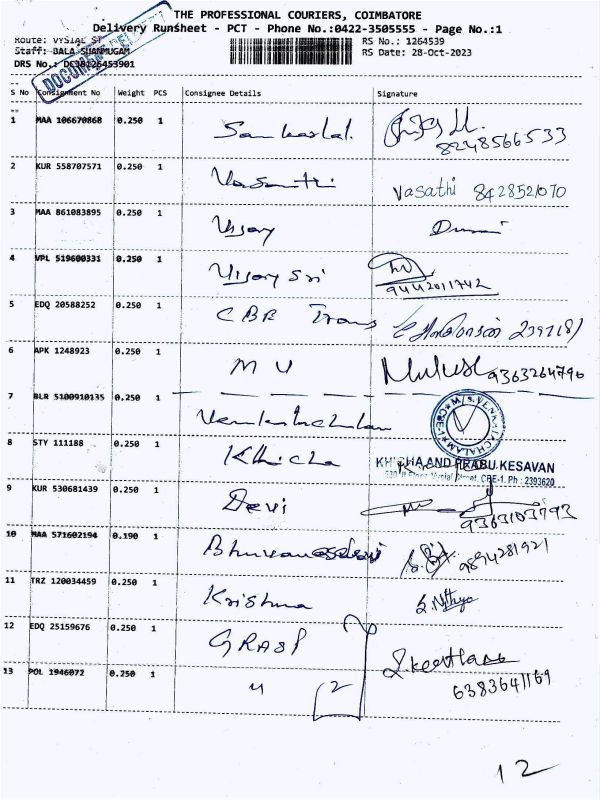 THE PROFESSIONAL COURIERS, COIMBATORE
Delivery Runsheet - PCT - Phone No.:0422-3505555 - Page No.:1
Route: VYSIAL ST RS No.: 1264539
Staff: BALA SHANMUGAM RS Date: 28-Oct-2023
DRS No.: DCS8126453901
S No Consignment No Weight PCS Consignee Details Signature
1 MAA 106670868 0.250 1 Sankarlal. 8248566533
2 KUR 558707571 0.250 1 Vasanthi Vasathi 8428521070
3 MAA 861083895 0.250 1 Vijay Durai
4 VPL 519600331 0.250 1 Vijay Sri 9442011742
5 EDQ 20588252 0.250 1 CBE Trans 2397181
6 APK 1248923 0.250 1 M U Mukesh 9363264796
7 BLR 5100910135 0.250 1 Venkatachalam M/S.VENKATACHALAM CBE-1
8 STY 111188 0.250 1 Khicha KHICHA AND PRABU KESAVAN
Street, CBE-1. Ph : 2393620
9 KUR 530681439 0.250 1 Devi 9363103793
10 MAA 571602194 0.190 1 Bhuvaneswari 9894281921
11 TRZ 120034459 0.250 1 Krishna S.Nithya
12 EDQ 25159676 0.250 1 GRASP S.keerthana
6383641169
13 POL 1946072 0.250 1 " 2
12